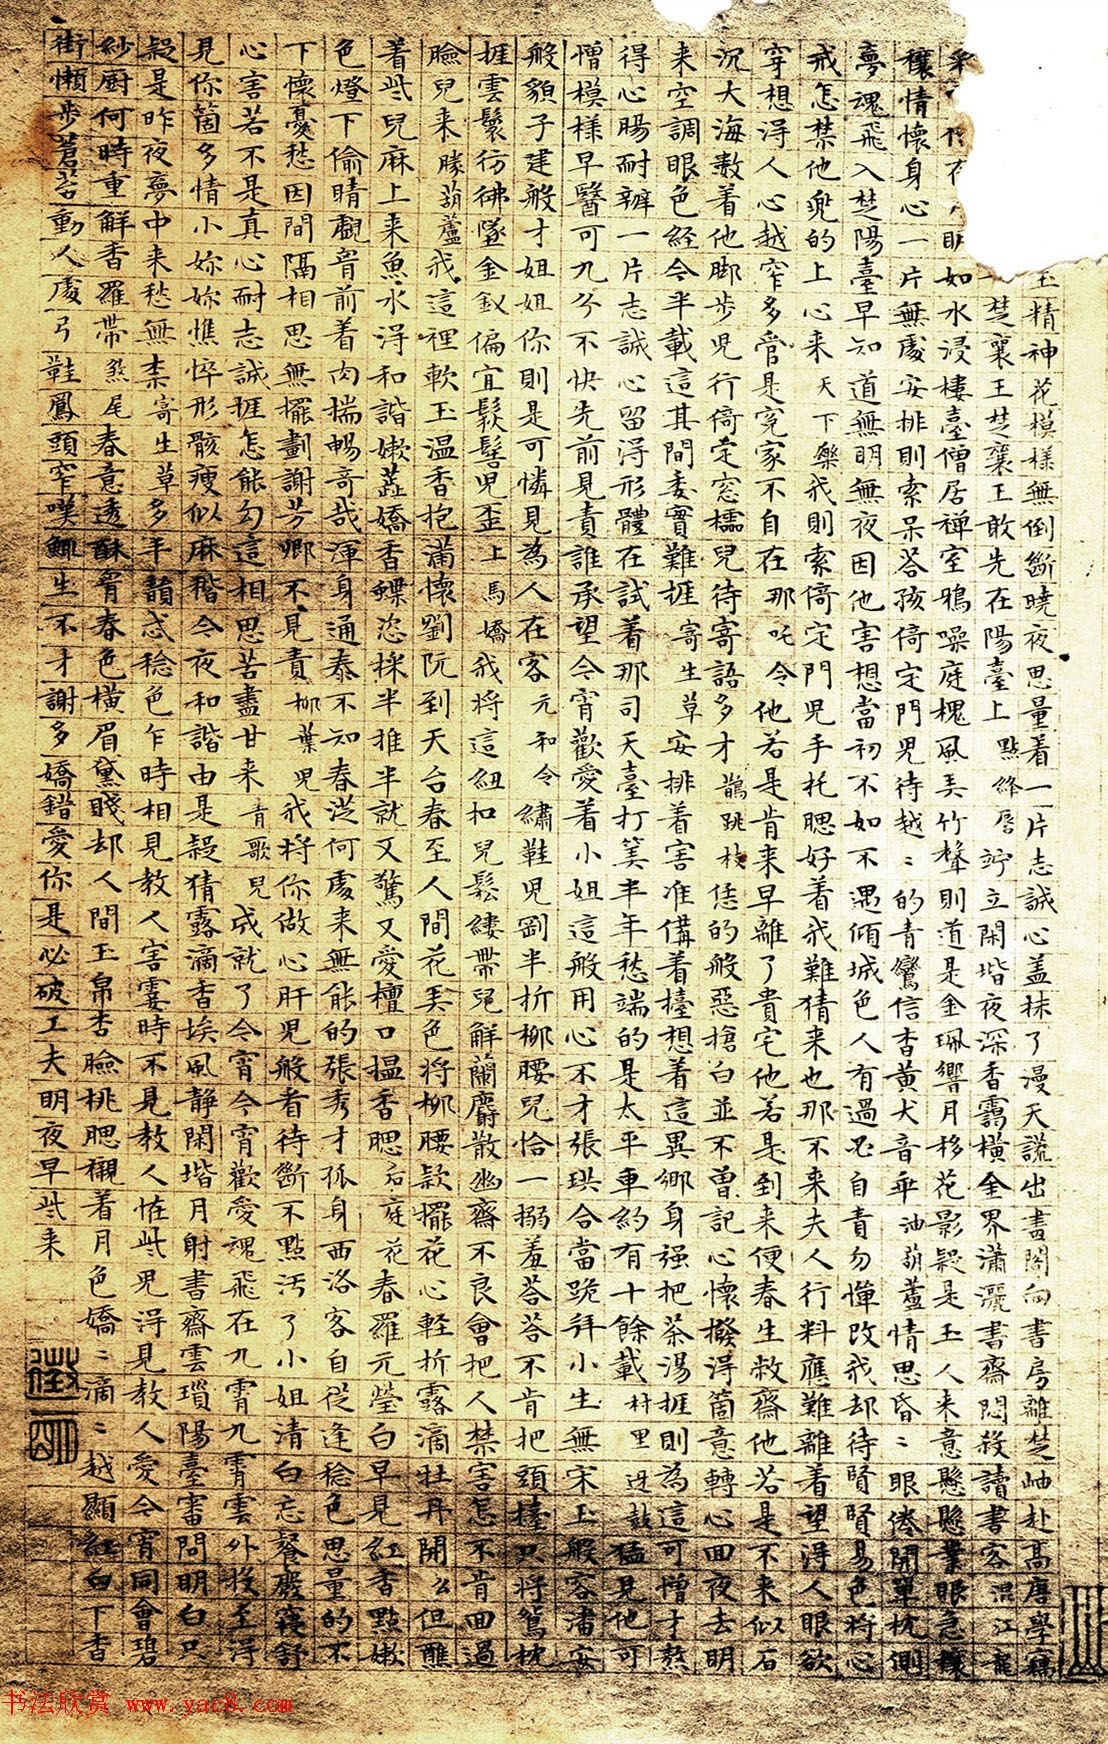 玉精神花模樣無倒斷曉夜思量着一片志誠心盖抹了漫天謊出畵閣向書房離楚岫赴高唐學竊
楚襄王楚襄王敢先在陽臺上點絳唇竚立閑堦夜深香靄橫金界瀟灑書齋悶殺讀書客混江龍
明如水浸樓臺僧居禪室鴉噪庭槐風弄竹聲則道是金珮響月移花影疑是玉人来意懸懸業眼急攘
穰情懷身心一片無處安排則索呆荅孩倚定門児待越〻的青鸞信杳黄犬音乖油葫蘆情思昏〻眼倦開單枕側
夢魂飛入楚陽臺早知道無明無夜因他害想當初不如不遇傾城色人有過必自責勿憚改我却待賢賢易色將心
戒怎禁他兜的上心来天下樂我則索倚定門児手托腮好着我難猜来也那不来夫人行料應難離着望得人眼欲
穿想得人心越窄多管是寃家不自在那吒令他若是肯来早離了貴宅他若是到来便春生敝齋他若是不来似石
沉大海數着他脚步児行倚定窓櫺兒待寄語多才鵲踏枝恁的般惡搶白並不曾記心懷撥得箇意轉心回夜去明
来空調眼色經今半載這其間委實難捱寄生草安排着害准備着擡想着這異鄉身强把茶湯捱則為這可憎才熬
得心腸耐辦一片志誠心留得形體在試着那司天臺打筭半年愁端的是太平車約有十餘載村里迓鼓猛見他可
憎模樣早醫可九分不快先前見責誰承望今宵歡愛着小姐這般用心不才張珙合當跪拜小生無宋玉般容潘安
般貌子建般才姐姐你則是可憐見為人在客元和令繡鞋児剛半折柳腰兒恰一搦羞荅荅不肯把頭擡只將鴛枕
捱雲鬟彷彿墜金釵偏宜䯼髻児歪上馬嬌我将這紐扣兒鬆縷帶兒解蘭麝散幽齋不良會把人禁害怎不肯回過
臉兒来勝葫蘆我這裡軟玉温香抱滿懷劉阮到天台春至人間花弄色將柳腰款擺花心輕折露滴牡丹開幺但蘸
着些兒麻上来魚水得和諧嫰蕋嬌香蝶恣採半推半就又驚又愛檀口揾香腮后庭花春羅元瑩白早見紅香點嫰
色燈下偷睛覷胷前着肉揣暢竒哉渾身通泰不知春從何處来無能的張秀才孤身西洛客自從逢稔色思量的不
下懷憂愁因間隔相思無擺劃謝芳卿不見責柳葉児我將你做心肝児般看待斷不點汚了小姐清白忘餐廢寢舒
心害若不是真心耐志誠捱怎能勾這相思苦盡甘来青歌兒成就了今宵今宵歡愛魂飛在九霄九霄雲外投至得
見你箇多情小妳妳憔悴形骸瘦似麻稭今夜和諧由是疑猜露滴香埃風静閑堦月射書齋雲瑣陽臺審問明白只
疑是昨夜夢中来愁無柰寄生草多丰韻忒稔色乍時相見教人害霎時不見教人恠些児得見教人愛今宵同會碧
紗厨何時重解香羅帶煞尾春意透酥胷春色横眉黛賤却人間玉帛杏臉桃腮襯着月色嬌〻滴〻越顯紅白下香
街懶步蒼苔動人處弓鞋鳳頭窄嘆鯫生不才謝多嬌錯愛你是必破工夫明夜早些来
徵明
书法欣赏 www.yac8.com